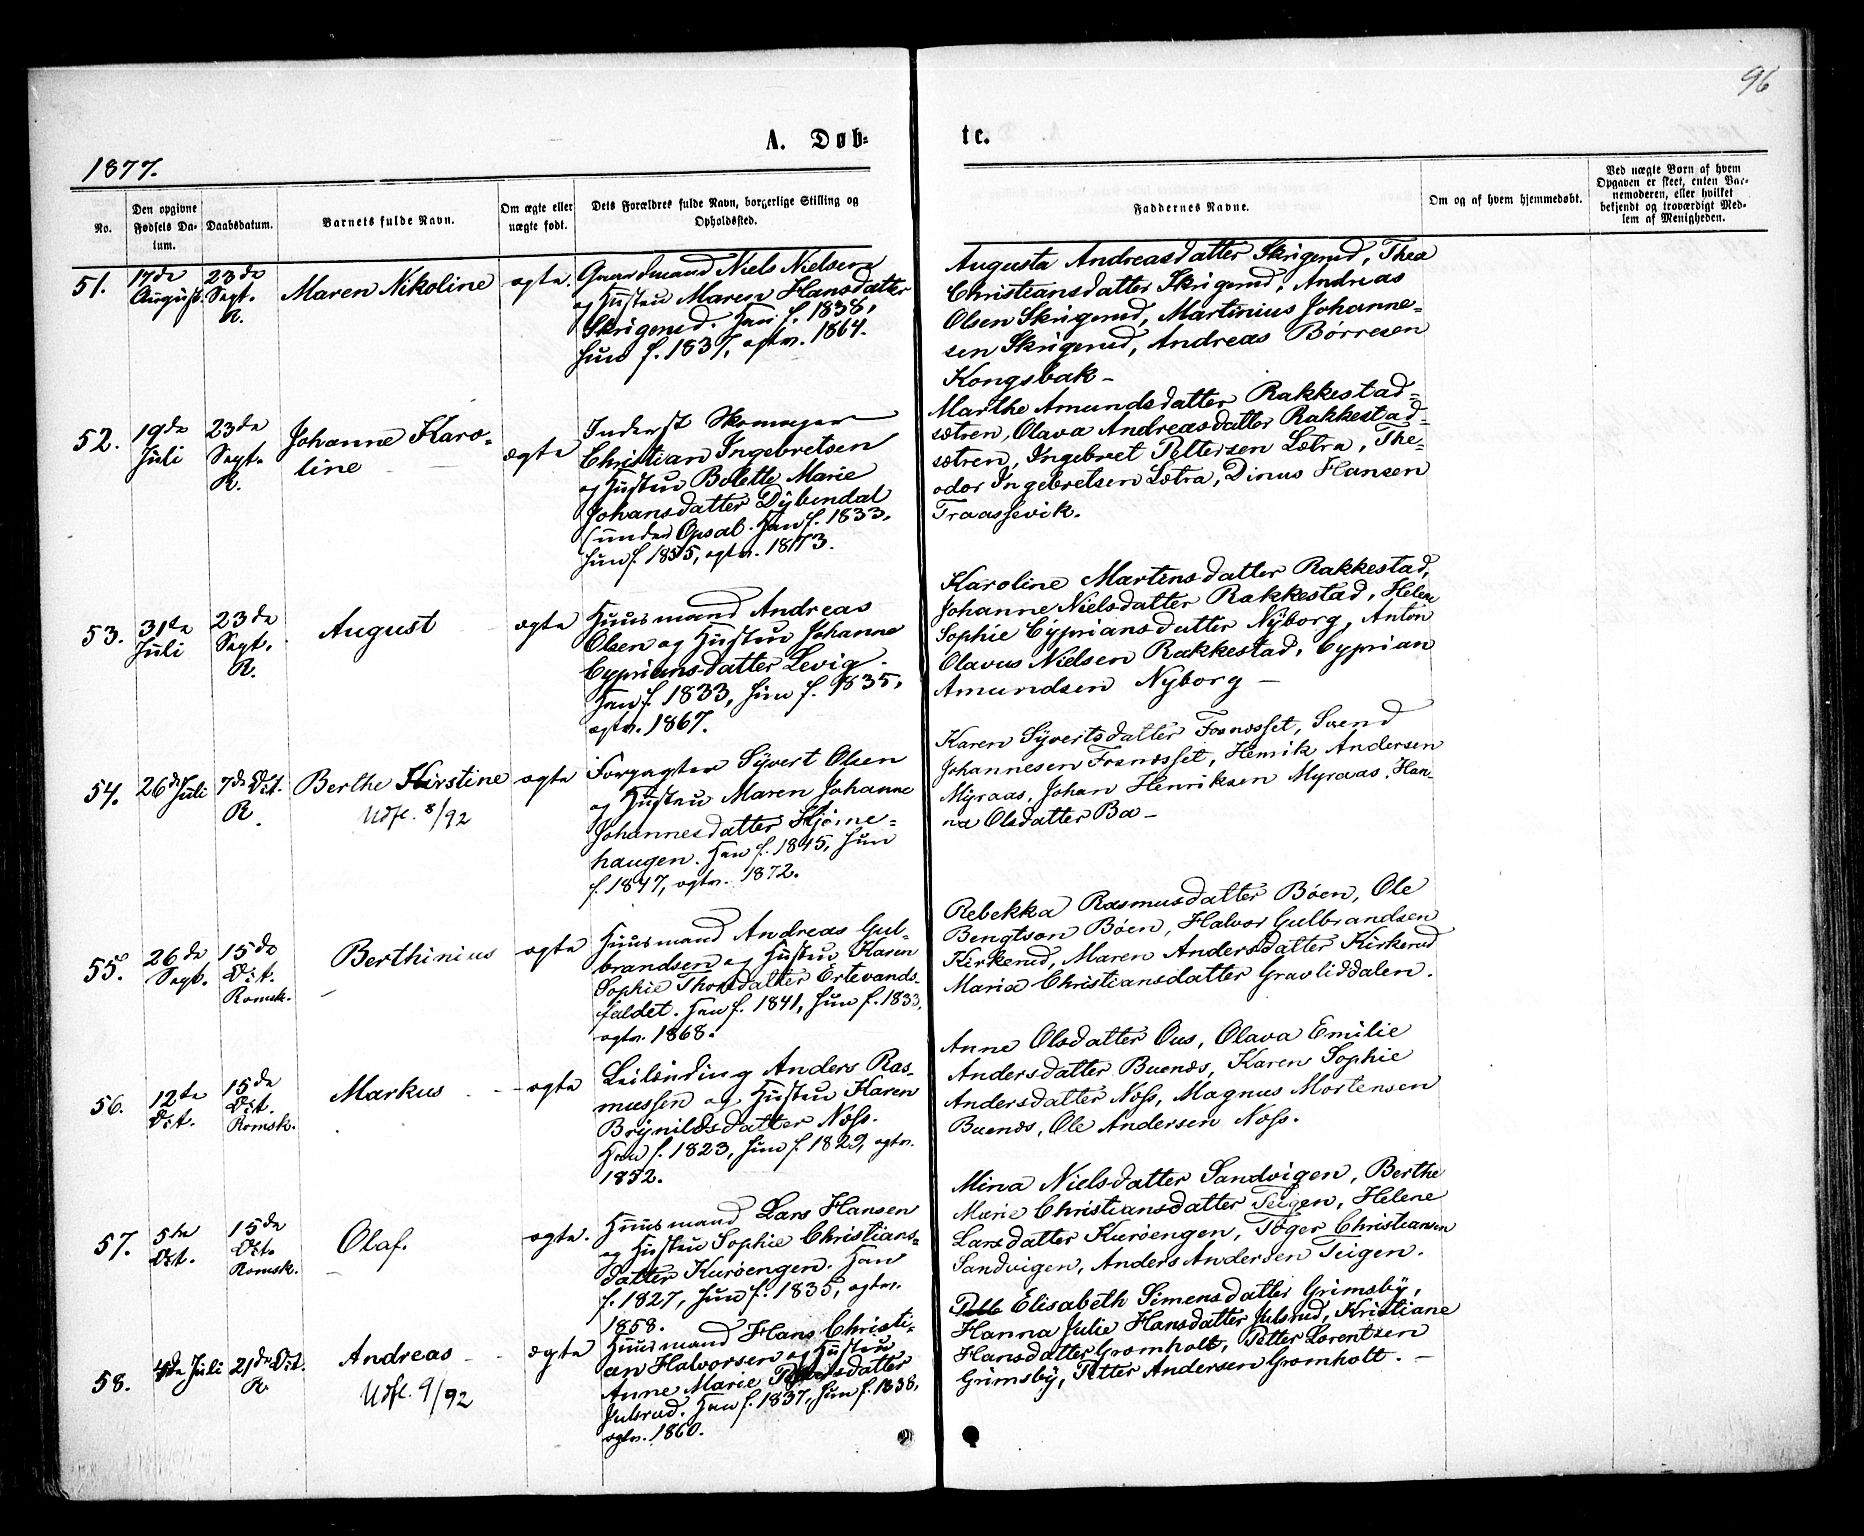 96
A. Døb-
te.
1877.
No.
Den opgivne
Fødsels Da-
tum.
Daabsdatum.
Barnets fulde Navn.
Om ægte eller
uægte født.
Dets Forældres fulde Navn, borgerlige Stilling og
Opholdssted.
Faddernes Navne.
Om og af hvem hjemmedøbt.
Ved uægte Born af hvem
Opgaven er skeet, enten Bar-
nemoderen, eller hvilket
bekjendt og troværdigt Med-
lem af Menigheden.
51.
17de
August.
23de
Sept.
R.
Maren Nikoline
ægte.
Gaardmand Niels Nielsen
og Hustru Maren Hansdatter
Skrigerud. Han f. 1838,
hun f. 1837, egtv. 1864.
Augusta Andreasdatter Skrigerud, Thea
Christiansdatter Skrigerud, Andreas
Olsen Skrigerud, Martinius Johanne-
sen Skrigerud, Andreas Børresen
Kongsbak -
52.
19de
Juli
23de
Sept.
R.
Johanne Karo-
line
ægte
Inderst Skomager
Christian Ingebretsen
og Hustru Bolette Marie
Johansdatter Dybendal
under Opsal. Han f. 1833.
hun f. 1835, egtv. 1873.
Marthe Amundsdatter Rakkestad-
sætren, Olava Andreasdatter Rakkestad-
sætren, Ingebret Pettersen Lætra, The-
odor Ingebretsen Lætra, Dinus Hansen
Traassevik.
53.
31te
Juli
23de
Sept.
R.
August
ægte
Huusmand Andreas
Olsen og Hustru Johanne
Cypriansdatter Levig.
Han f. 1833, hun f. 1835,
egtv. 1867.
Karoline Martinsdatter Rakkestad,
Johanne Nielsdatter Rakkestad, Helene
Sophie Cypriansdatter Nyborg, Anton
Olavus Nielsen Rakkestad, Cyprian
Amundsen Nyborg -
54.
26de Juli
7de Oct.
R.
Berthe Kirstine
Udfl. 8/92
ægte
Forpagter Syvert Olsen
og Hustru Maren Johanne
Johannesdatter Kjørne-
haugen. Han f. 1845, hun
f. 1847, egtv. 1872.
Karen Syvertsdatter Fosnæsset, Svend
Johannesen Frønæsset, Henrik Andersen
Myraas, Johan Henriksen Myraas, Han-
na Olsdatter Bø -
55.
26de
Sept.
15de
Oct.
Romsk.
Berthinius
ægte
Huusmand Andreas Gul-
brandsen og Hustru Karen
Sophie Thorsdatter Ertevands-
faldet. Han f. 1841, hun f. 1833,
egtv. 1868.
Rebekka Rasmusdatter Böen, Ole
Bengtson Böen, Halvor Gulbrandsen
Kirkerud, Maren Andersdatter Kirkerud
Maria Christiansdatter Gravliddalen.
56.
12te
Oct.
15de
Oct.
Romsk.
Markus
ægte
Leilænding Anders Ras-
mussen og Hustru Karen
Brynildsdatter Næss.
Han f. 1823, hun f. 1829, egtv.
1852.
Anne Olsdatter Ous, Olava Emilie
Andersdatter Buenæs, Karen Sophie
Andersdatter Næss, Magnus Mortensen
Buenæs, Ole Andersen Næss.
57.
5te
Oct.
15de
Oct.
Romsk.
Olaf.
ægte.
Huusmand Lars Hansen
og Hustru Sophie Christians-
datter Kuröengen. Han
f. 1827, hun f. 1835, egtv.
1858.
Mina Nielsdatter Sandvigen, Berthe
Marie Christiansdatter Teigen, Helene
Larsdatter Kuröengen, Töger Christiansen
Sandvigen, Anders Andersen Teigen.
58.
4de Juli
21de Oct.
R
Andreas
Udfl. 9/92
ægte
Huusmand Hans Christi-
an Halvorsen og Hustru
Anne Marie Pettersdatter
Julsrud. Han f. 1837, hun f. 1838,
egtv. 1860.
Elisabeth Simensdatter Grimsby,
Hanna Julie Hansdatter Julsrud, Kristiane
Hansdatter Gromholt, Petter Lorentzen
Grimsby, Petter Andersen Gromholt. -